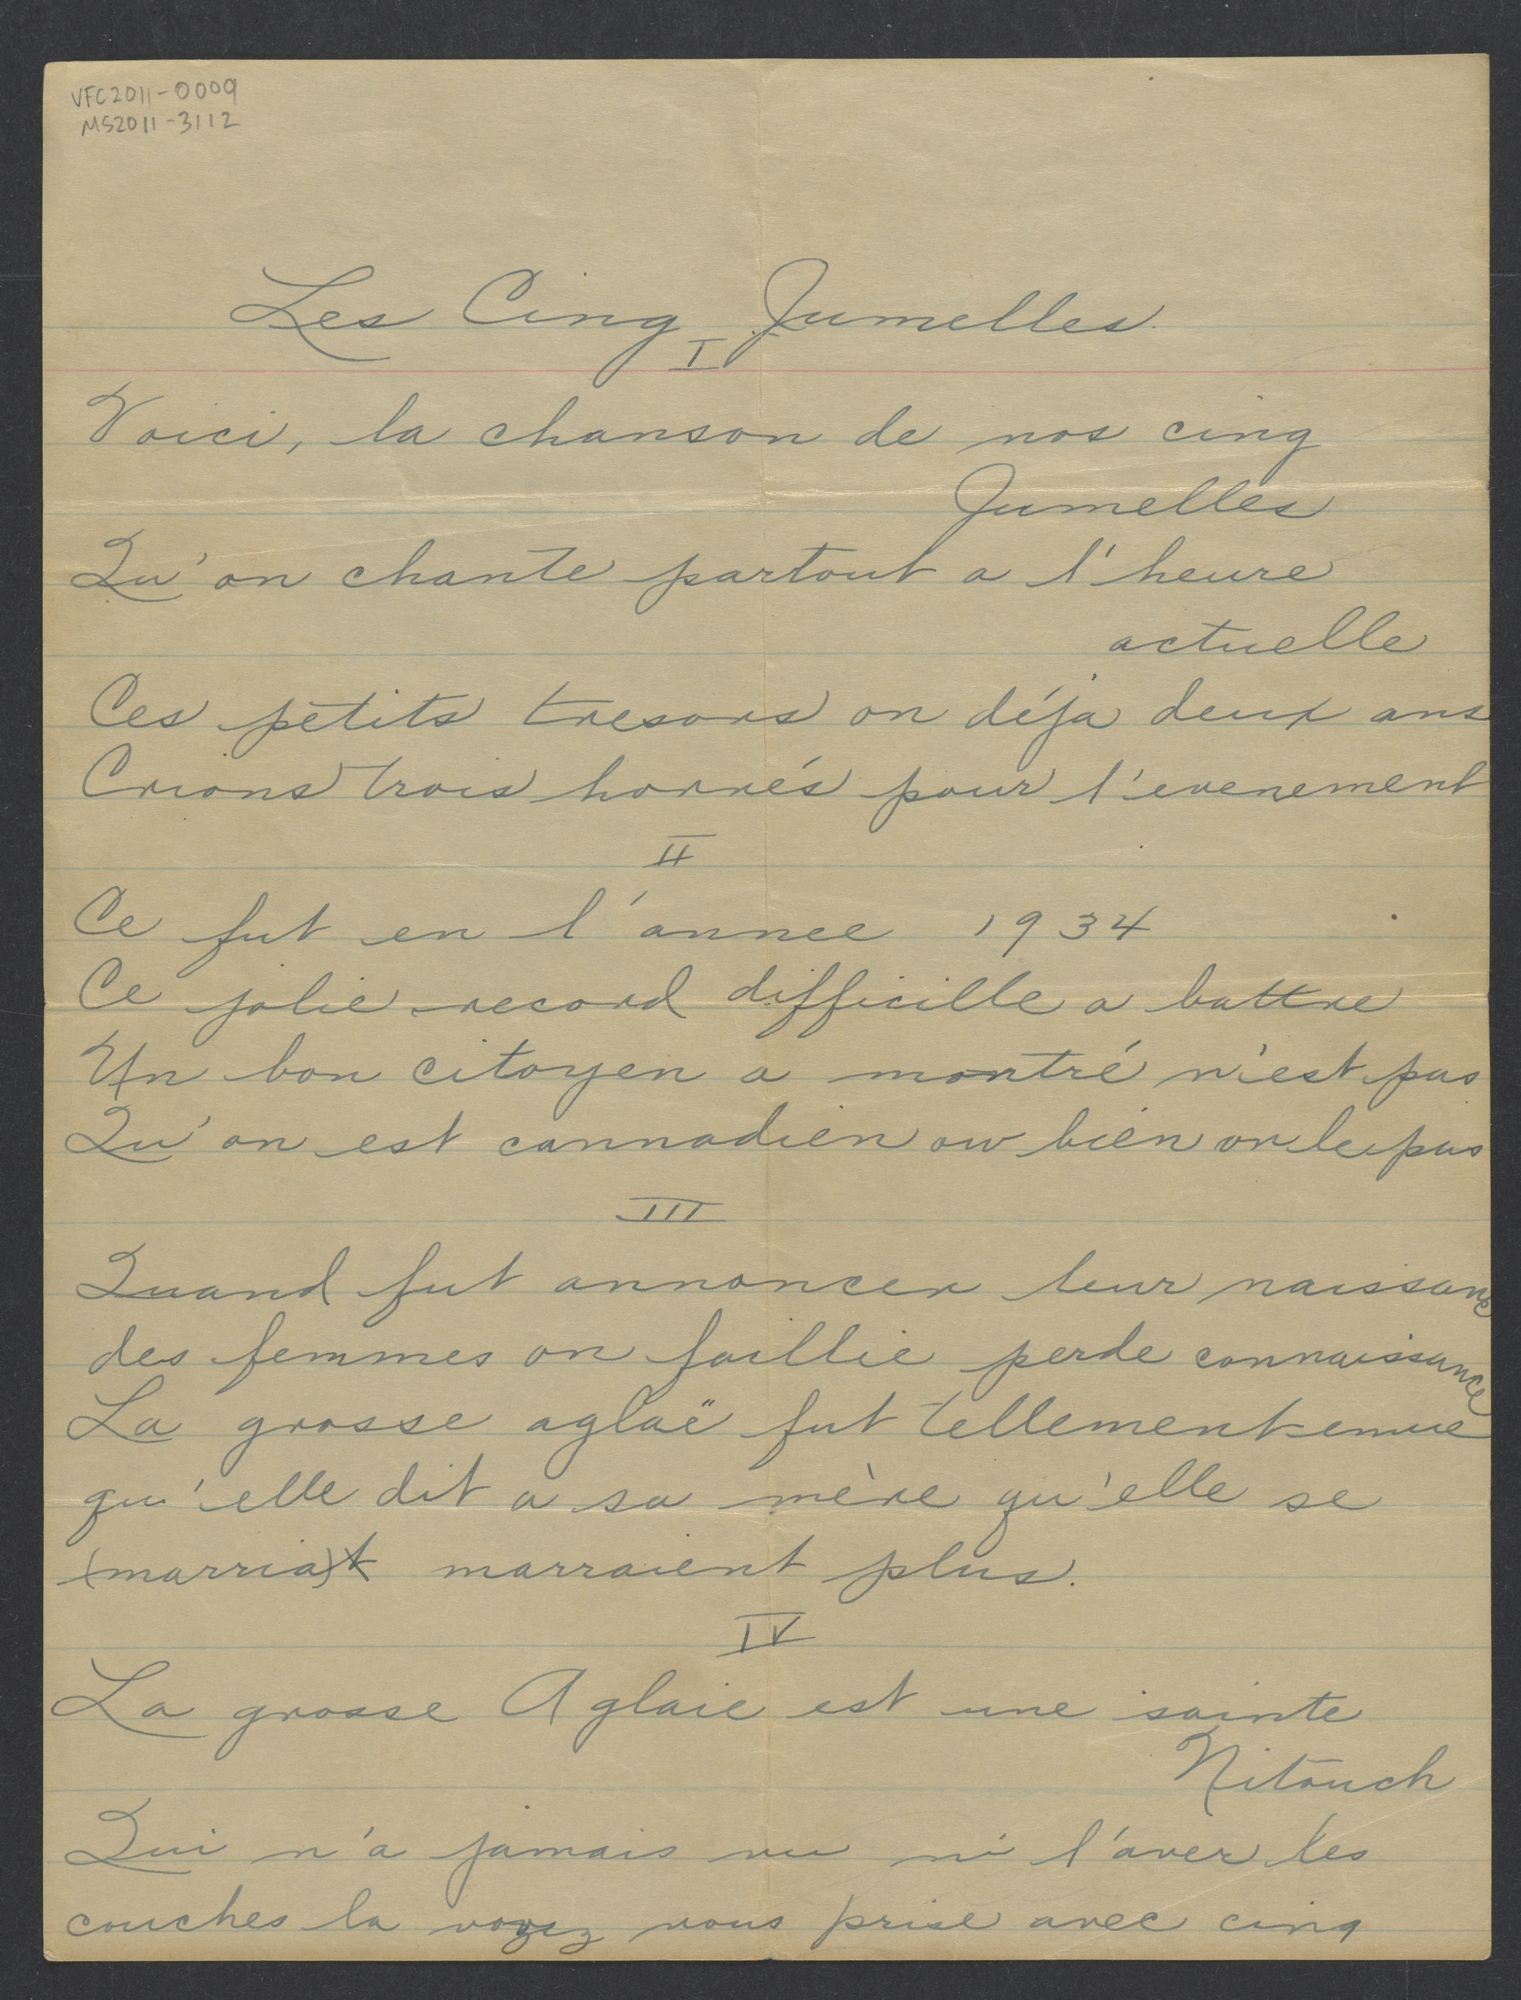 VFC2011-0009
MS2011-3112
Les Cinq Jumelles.
I
Voici, la chanson de nos cinq
Jumelles
Qu'on chante partout a l'heure
actuelle
Ces petits tresors on déjà deux ans
Crions trois horrés pour l'evenement
II
Ce fut en l'annee 1934
Ce jolie record difficille a battre
Un bon citoyen a montré n'est pas
Qu'on est cannadien ou bien on le pas
III
Quand fut annoncer leur naissance
des femmes on faillie perde connaissance
La grosse aglaë fut tellement emue
qu'elle dit a sa mère qu'elle se
(marriat) marraient plus.
IV
La grosse Aglaie est une sainte
Nitouch
Qui n'a jamais vu ni l'aver les
couches la voyez vous prise avec cinq